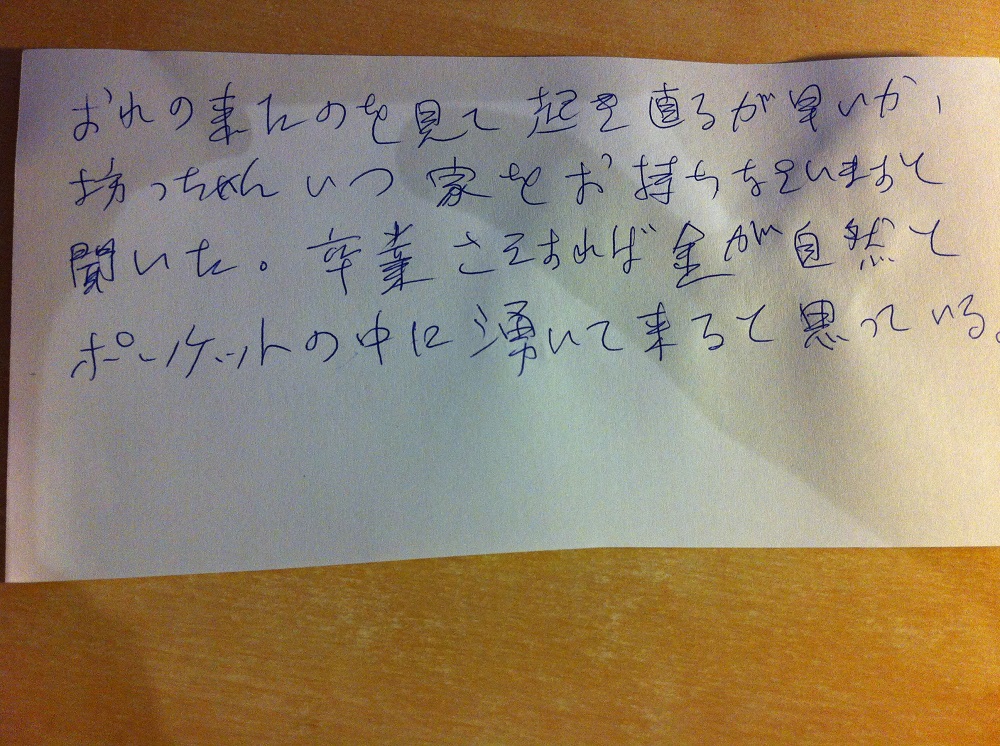 おれの来たのを見て起き直るが早いか、
坊っちゃんいつ家をお持ちなさいますと
聞いた。卒業さえすれば金が自然と
ポッケットの中に湧いて来ると思っている。